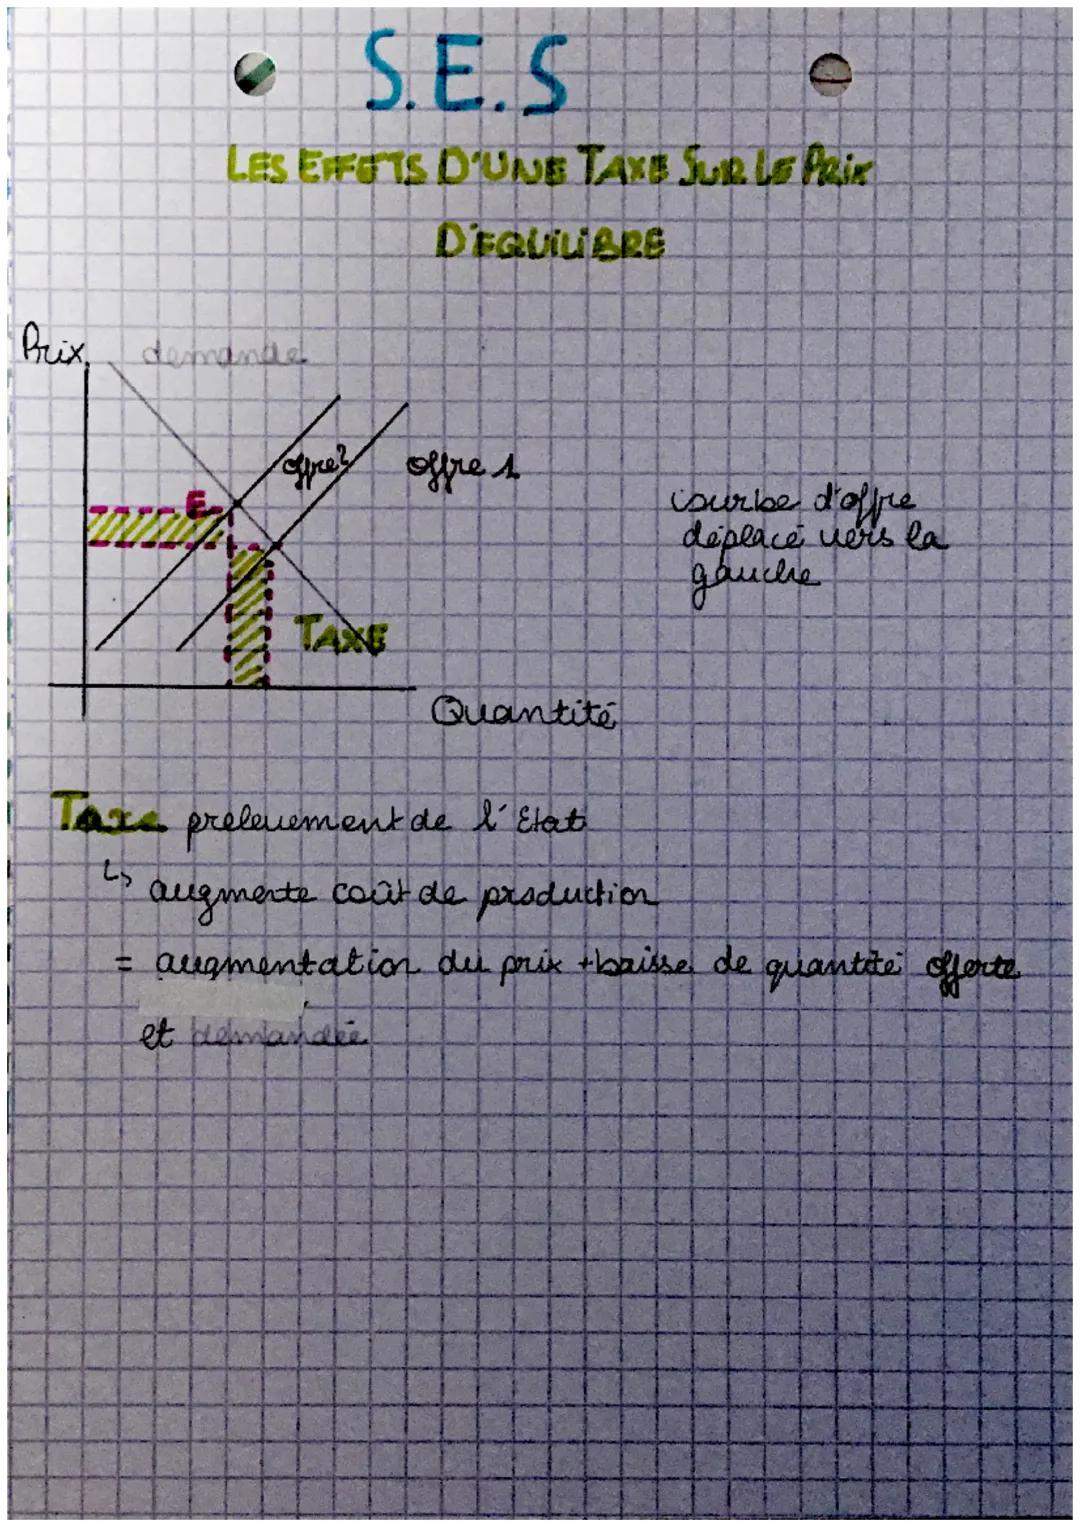 S.E.S
LES EFFETS D'UNE TAXE SUR LE PRIX
D'EQUILIBRE
Prix
demande
offre 2
offre 1
E
courbe d'offre
déplacé vers la
gauche
TAXE
Quantité
Taxe prelevement de l'Etat
↳ augmente coût de production
= augmentation du prix + baisse de quantité offerte
et demandée